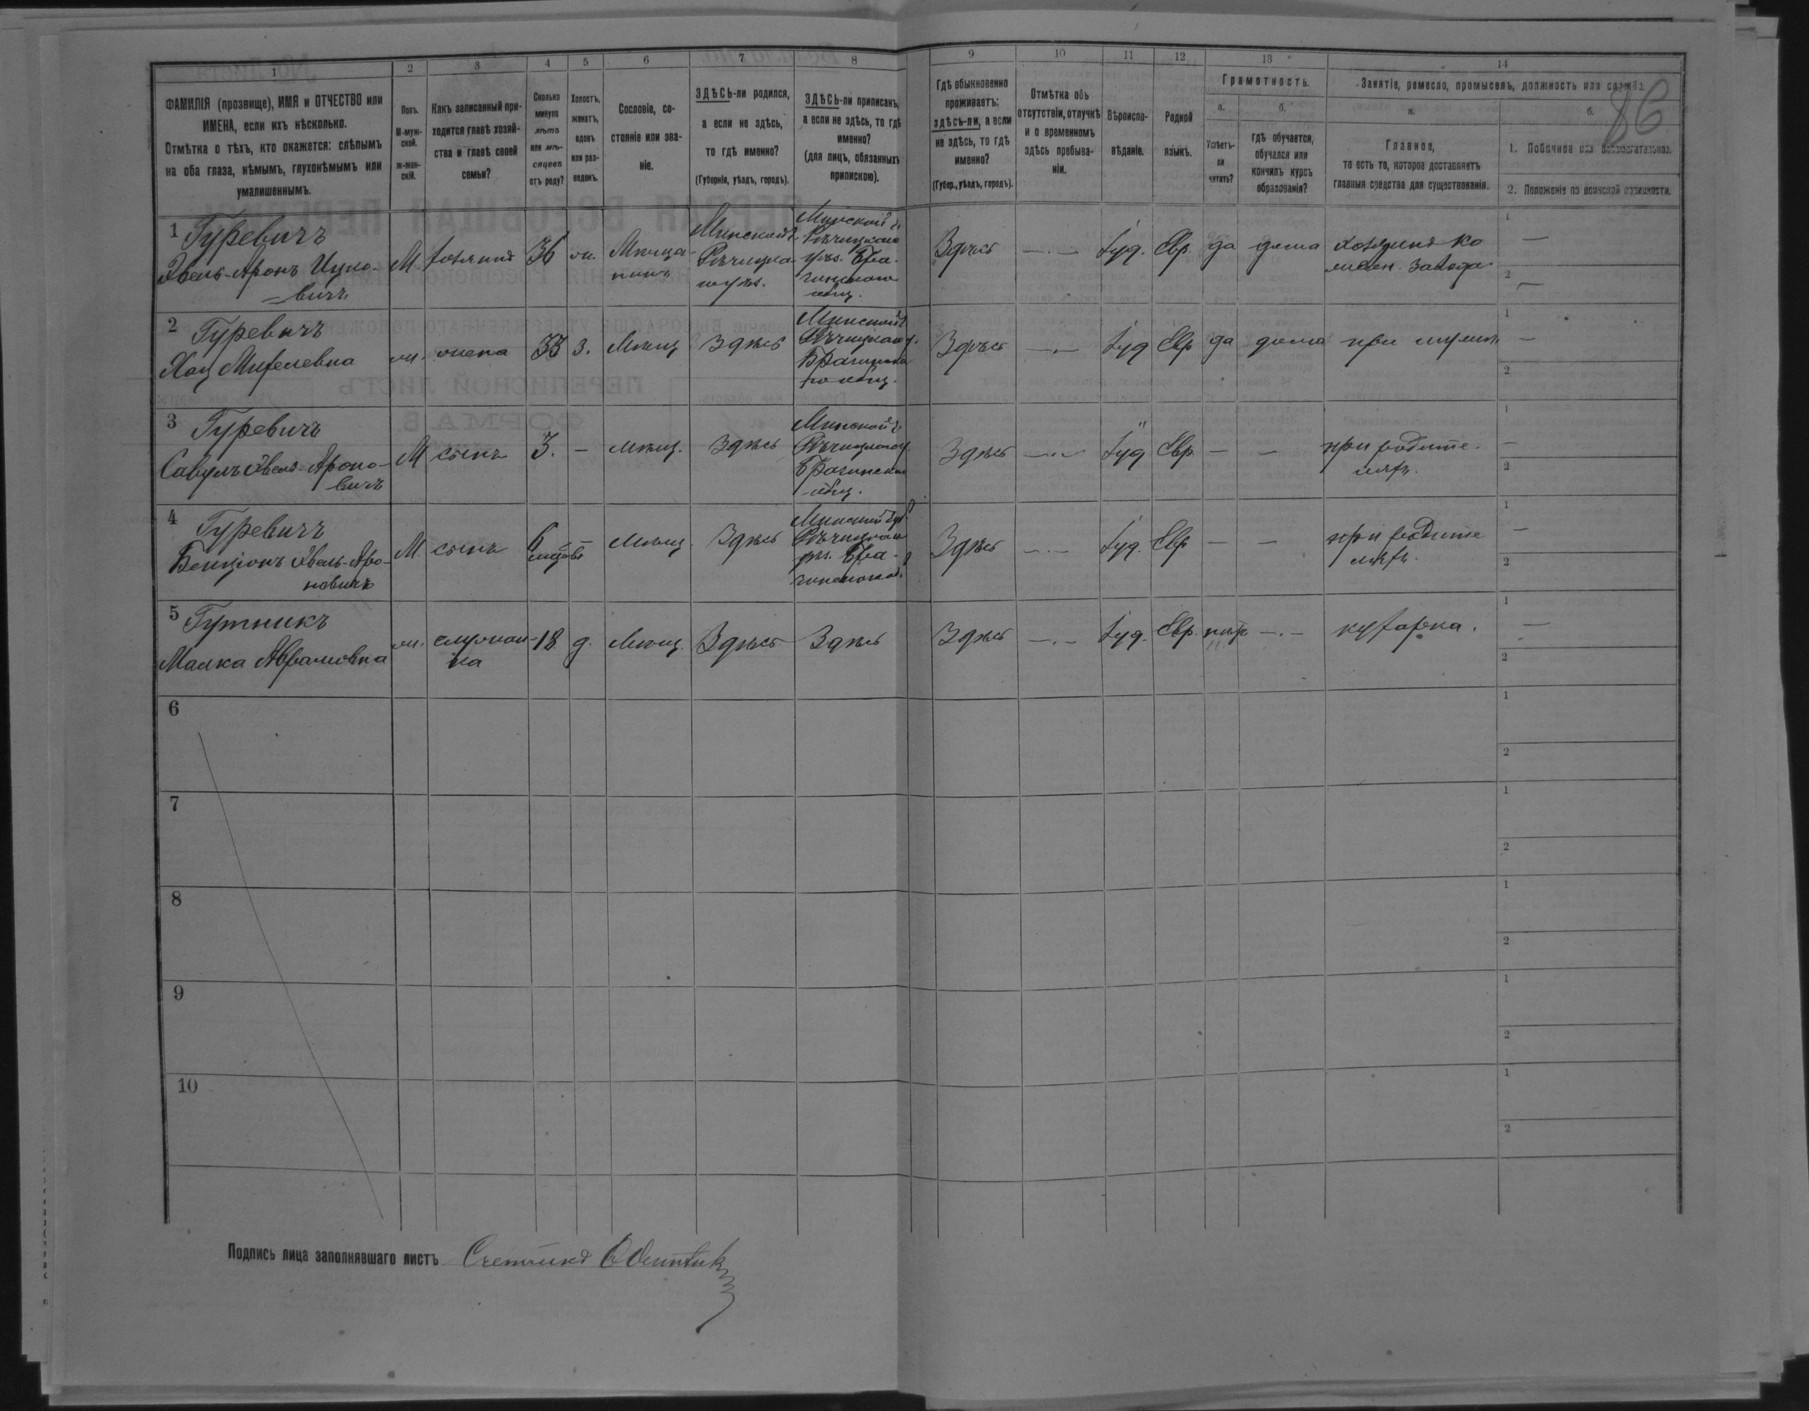 86
1 2 3 4 5 6 7 8 9 10 11 12 13 14
ФАМИЛІЯ (прозвище), ИМЯ и ОТЧЕСТВО или
ИМЕНА, если ихъ нѣсколько.
Отмѣтка о тѣхъ, кто окажется: слѣпымъ
на оба глаза, нѣмымъ, глухонѣмымъ или
умалишеннымъ.
Полъ.
М-муж-
ской.
ж-жен-
скій.
Какъ записанный при-
ходится главѣ хозяй-
ства и главѣ своей
семьи?
Сколько
минуло
лѣтъ
или мѣ-
сяцевъ
отъ роду?
Холостъ,
женатъ,
вдовъ
или раз-
веденъ.
Сословіе, со-
стояніе или зва-
ніе.
ЗДѢСЬ-ли родился,
а если не здѣсь,
то гдѣ именно?
(Губернія, уѣздъ, городъ).
ЗДѢСЬ-ли приписанъ,
а если не здѣсь, то гдѣ
именно?
(для лицъ, обязанныхъ
припискою).
Гдѣ обыкновенно
проживаетъ:
здѣсь-ли, а если
не здѣсь, то гдѣ
именно?
(Губер., уѣздъ, городъ).
Отмѣтка объ
отсутствіи, отлучкѣ
и о временномъ
здѣсь пребыва-
ніи.
Вѣроиспо-
вѣданіе.
Родной
языкъ.
Грамотность.
а.
Умѣетъ-
ли
читать?
б.
гдѣ обучается,
обучался или
кончилъ курсъ
образованія?
Занятіе, ремесло, промыселъ, должность или служба.
а.
Главное,
то есть то, которое доставляетъ
главныя средства для существованія.
б.
1. Побочное или вспомогательное.
2. Положеніе по воинской повинности.
1 Гуревичъ
Авель-Аронъ Ицко-
вичъ
М хозяинъ 36 Мѣща-
нинъ
Минской г.
Рѣчицка
Минской г.
Рѣчицкаго
уѣз. Бра-
гинскаго
общ.
Здѣсь — Іуд. Евр. да дома
хозяинъ ко
завода
1 —
2 —
2 Гуревичъ
Хая
жена 33 з. Мѣщ. Здѣсь
Минской г.
Рѣчицкаго у.
Брагинска
го общ.
Здѣсь — Іуд Евр да дома при мужѣ
1 —
2
3 Гуревичъ
Авель-Ароно-
вичъ
М сынъ 3. — Мѣщ. Здѣсь
Минской г.
Рѣчицкаго у.
Брагинскаго
общ.
Здѣсь — Іуд Евр — —
при родите-
ляхъ.
1 —
2
4 Гуревичъ
Бенціонъ Авель-Аро-
новичъ
М сынъ 6 — Мѣщ. Здѣсь
Минской губ.
Рѣчицкаго
уѣз. Бра-
гинскаго
Здѣсь — Іуд. Евр — —
при родите
ляхъ.
1 —
2
5 Гутникъ
Малка Абрамовна
18 д. Мѣщ. Здѣсь Здѣсь Здѣсь — Іуд. Евр. — кухарка.
1 —
2
6
1
2
7
1
2
8
1
2
9
1
2
10
1
2
Подпись лица заполнявшаго листъ Счетчикъ